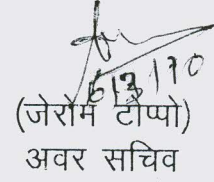 6/3/10
(जेरोम टोप्पो)
अवर सचिव